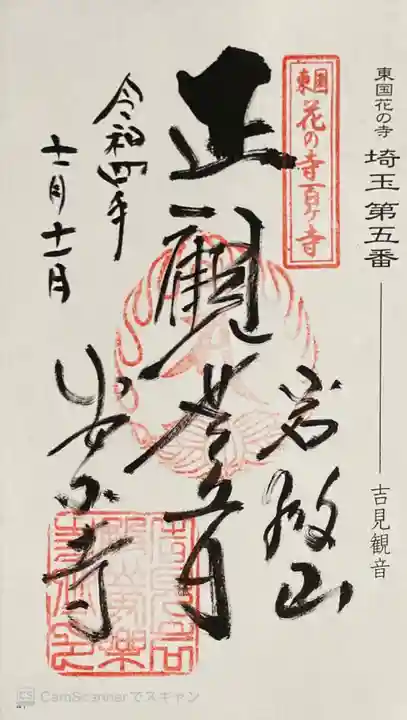 東国花の寺 埼玉第五番 吉見観音
東国
花の寺百ヶ寺
岩殿山
正観世音
安楽寺
令和四年
十一月十一日
CS CamScannerでスキャン